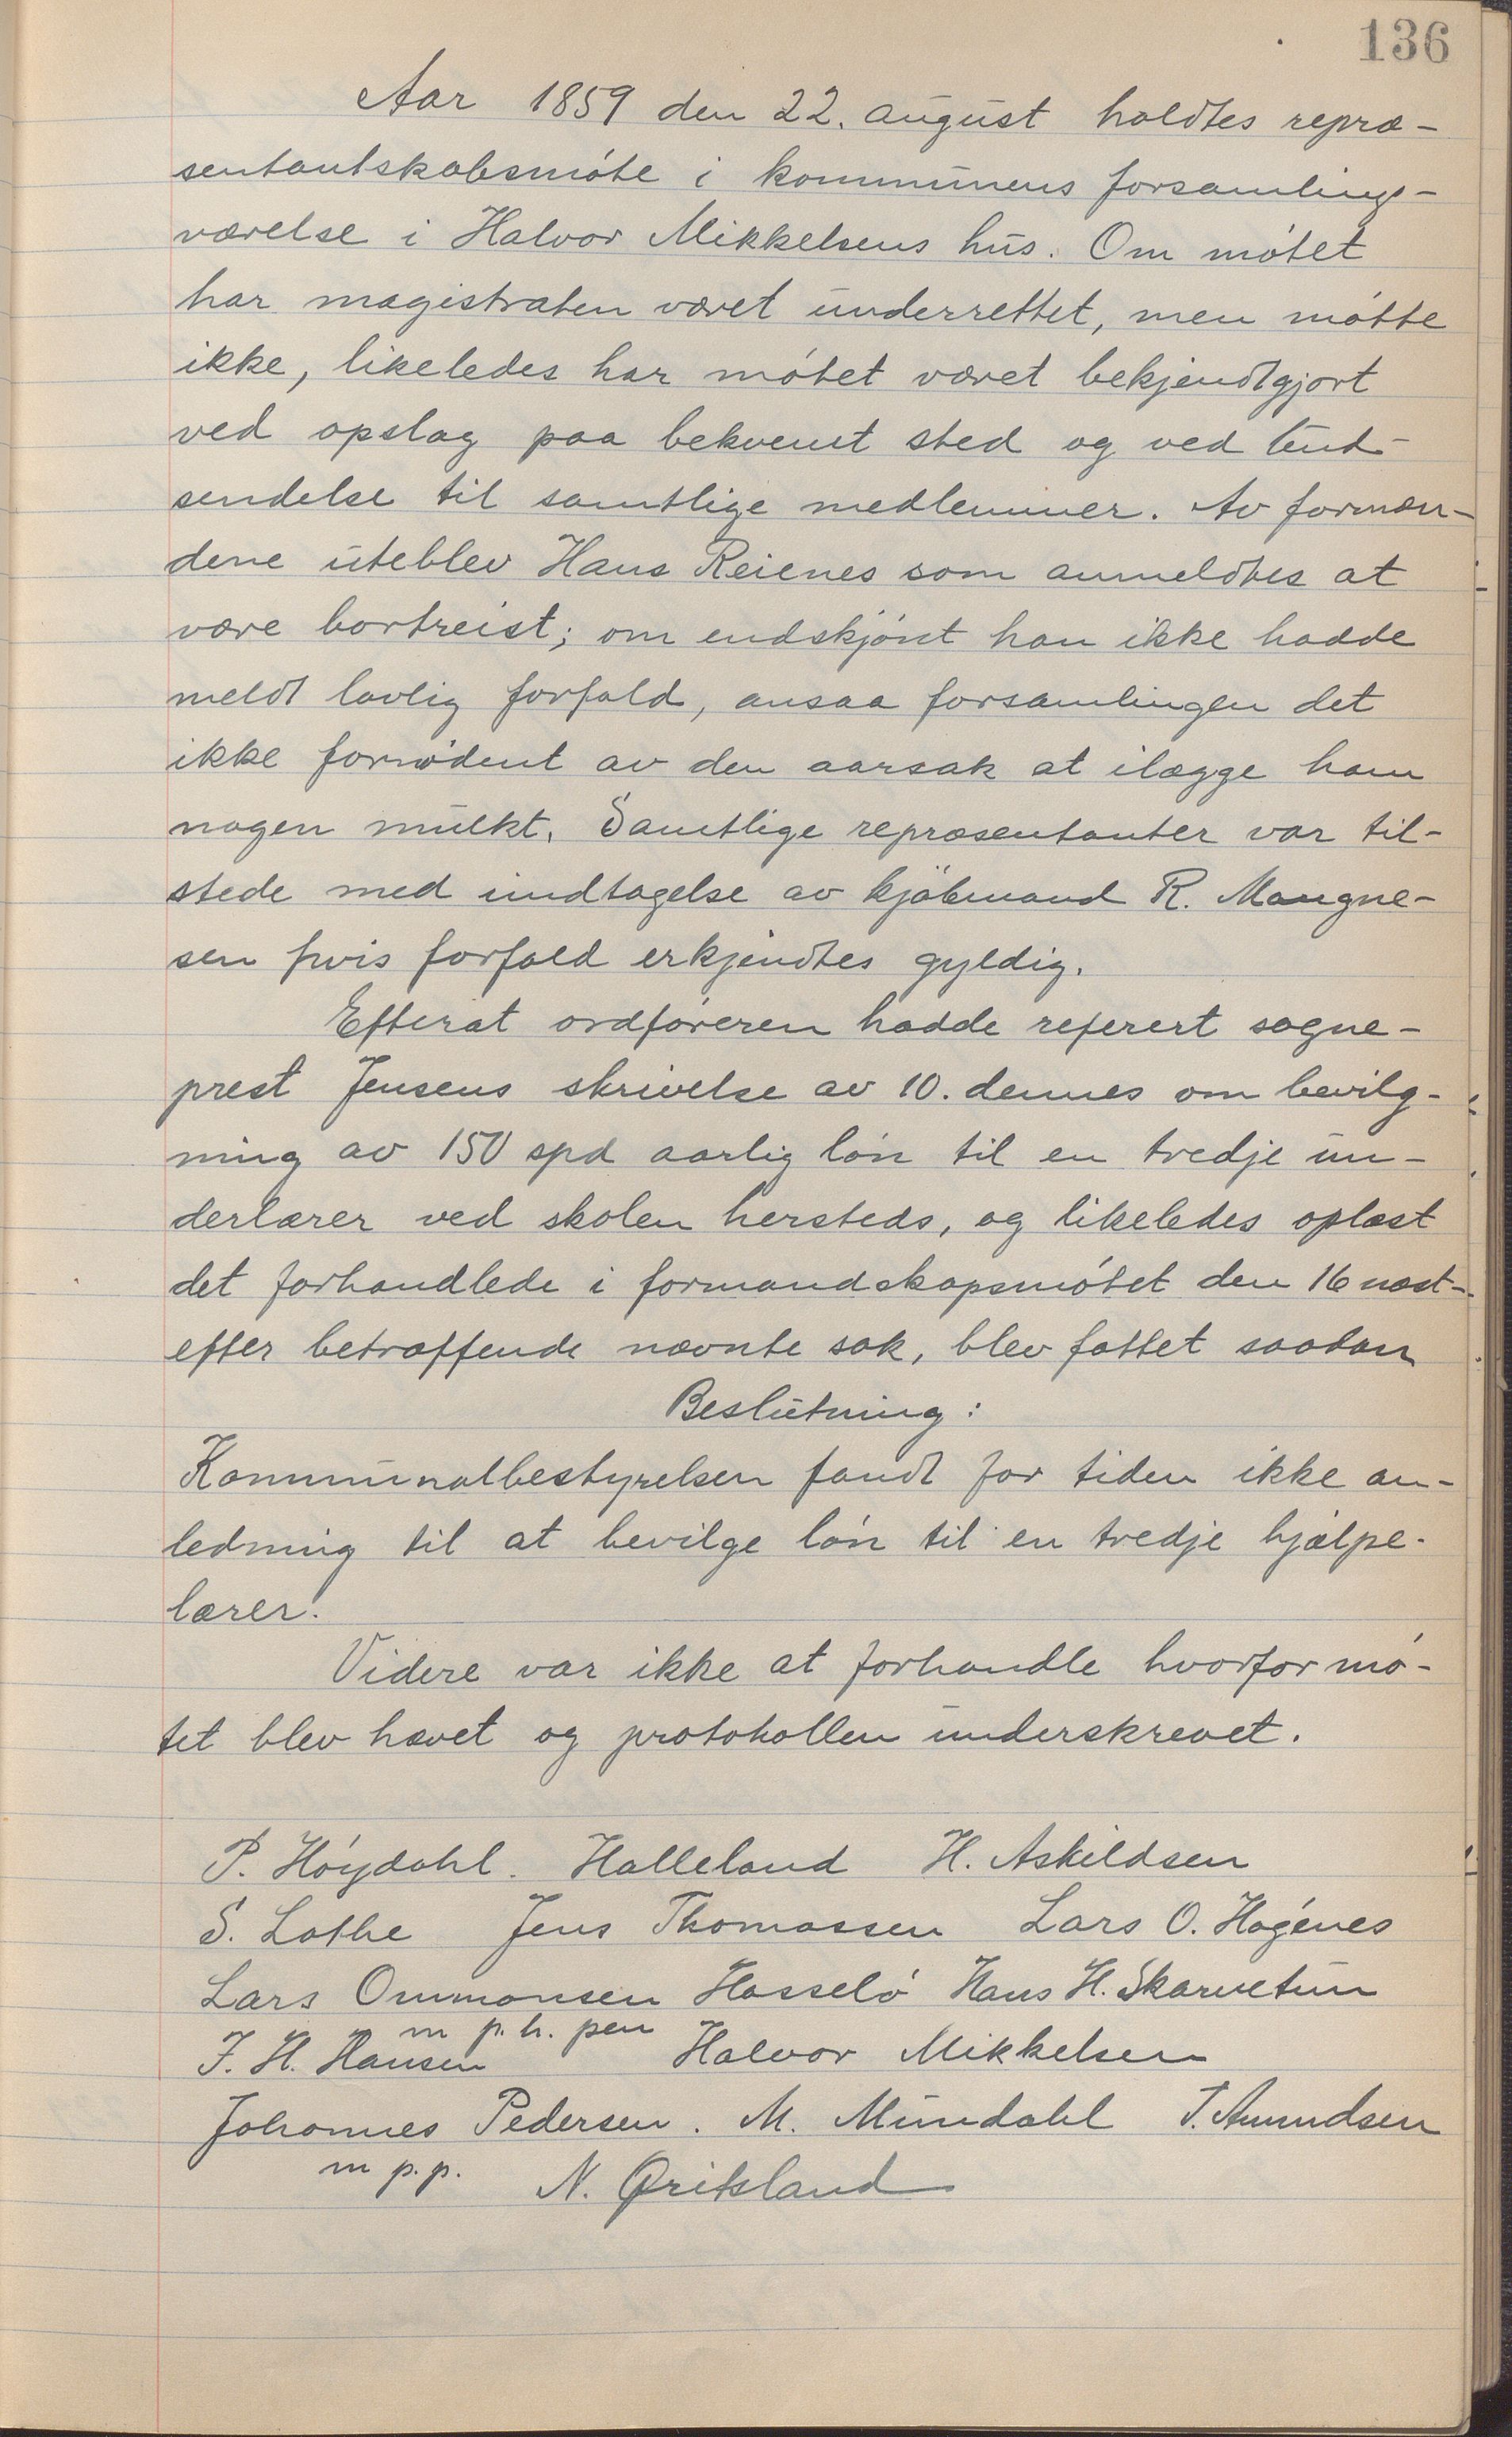 136
Aar 1859 den 22. august holdtes repræ-
sentantskabsmøte i kommunens forsamlings-
værelse i Halvor Mikkelsens hus. Om møtet
har magistraten været underrettet, men møtte
ikke, likeledes har møtet været bekjendtgjort
ved opslag paa bekvemt sted og ved
sendelse til samtlige medlemmer. Av formæn-
dene uteblev Hans Reienes som anmeldtes at
være bortreist; om endskjønt han ikke hadde
meldt lovlig forfald, ansaa forsamlingen det
ikke fornødent av den aarsak at ilægge ham
nogen mulkt. Samtlige repræsentanter var til-
stede med undtagelse av kjøbmand R. Mangne-
sen hvis forfald erkjendtes gyldig.
Efterat ordføreren hadde referert sogne-
prest Jensens skrivelse av 10. dennes om bevilg-
ning av 150 spd aarlig løn til en tredje un-
derlærer ved skolen hersteds, og likeledes oplæst
det forhandlede i formandskapsmøtet den 16 næst-
efter betræffende nævnte sak, blev fattet saadan
Beslutning:
Kommunalbestyrelsen fandt for tiden ikke an-
ledning til at bevilge løn til en tredje hjælpe-
lærer.
Videre var ikke at forhandle hvorfor mø-
tet blev hævet og protokollen underskrevet.
P. Høydahl. Halleland H. Askildsen
S. Lothe Jens Thomassen Lars O. Høgénes
Lars Ommonsen Hasselø Hans H. Skarvetun
m p. h. pen
J. H. Hansen Halvor Mikkelsen
Johannes Pedersen. M. Mundahl T. Amundsen
m p. p. N. Øritsland